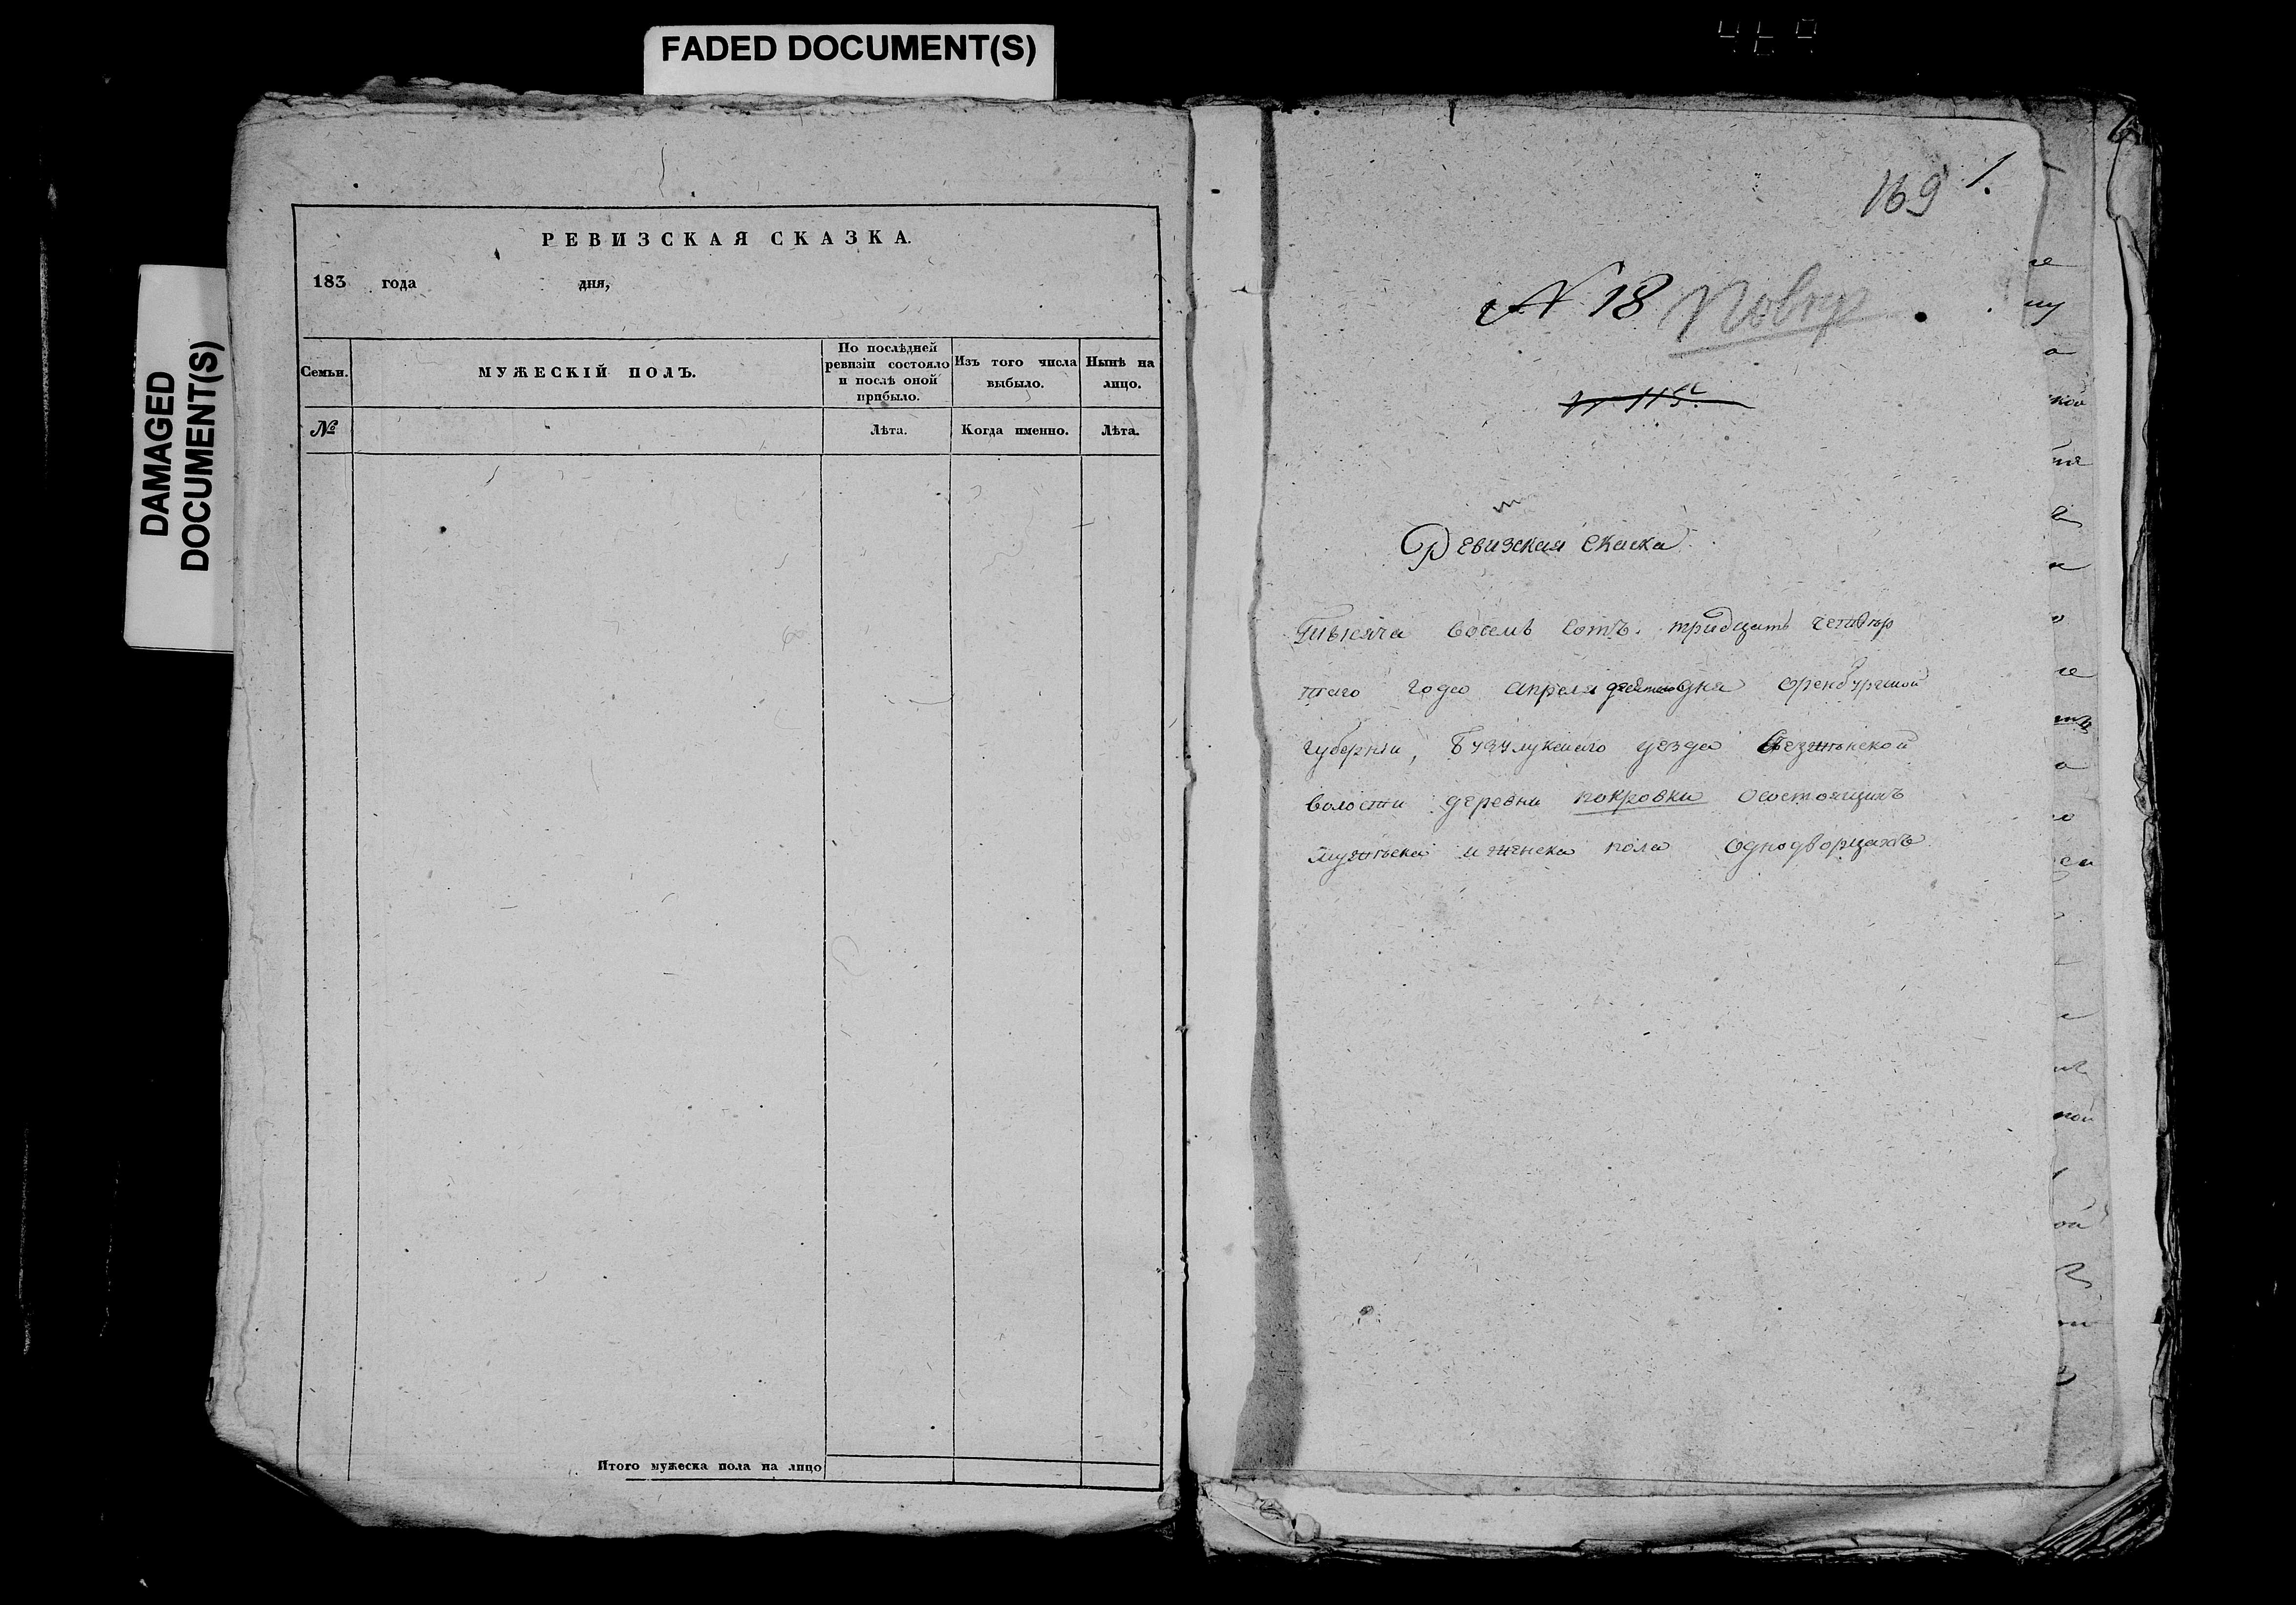 FADED DOCUMENT(S)
DAMAGED
DOCUMENT(S)
РЕВИЗСКАЯ СКАЗКА.
183 года дня,
Семьи.
МУЖЕСКІЙ ПОЛЪ.
По послѣдней
ревизіи состояло
и послѣ оной
прибыло.
Изъ того числа
выбыло.
Нынѣ на
лицо.
№
Лѣта.
Когда именно.
Лѣта.
Итого мужеска пола на лицо
169 1.
N 18
N 115
Ревизская скаска
Тысяча восемь сотъ тридцать четвер
таго года апреля девятаго дня оренбургской
губерніи, бузулукскаго уезда
волости деревни покровки осостоящихъ
мужеска и женска пола однодворцахъ